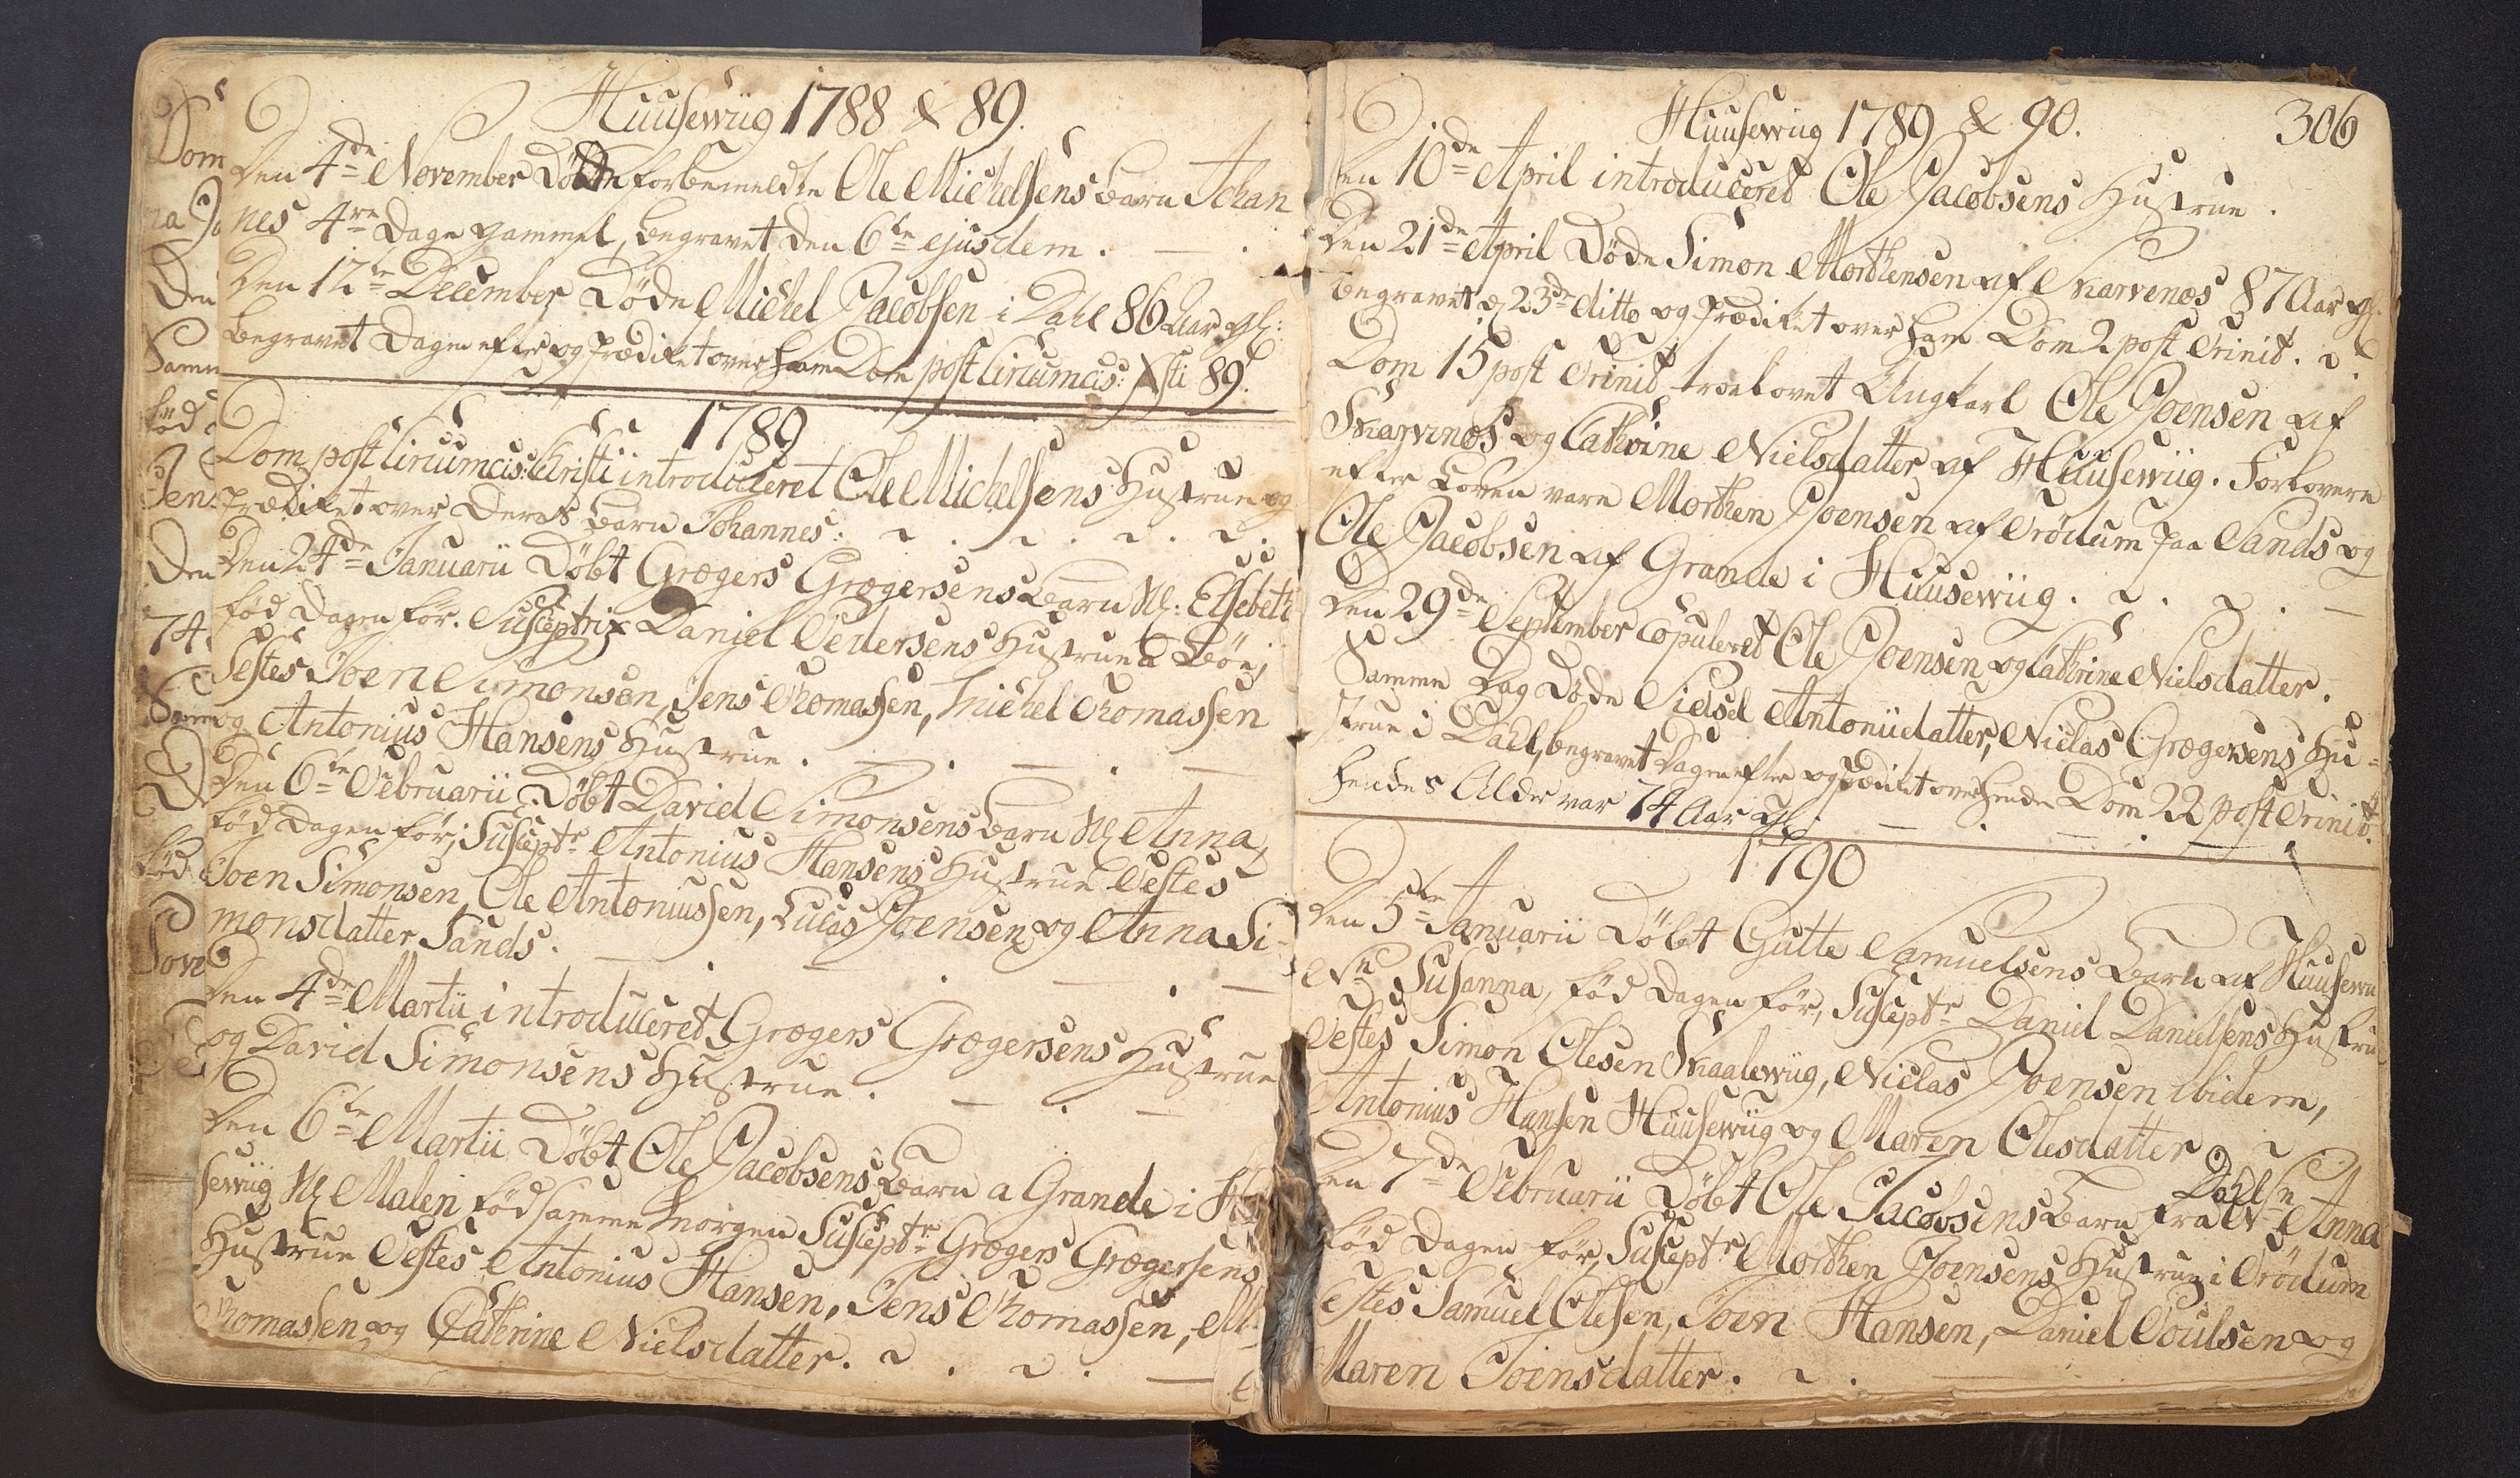 Huusewiig 1788 & 89.
Den 4de November Döde forbemeldte Ole Michelsens barn Johan
nes 4re Dage gammel, begravet den 6te ejusdem.
Den 12te December Döde Michel Jacobsen i Dahl 86 Aar gl:
begravet Dagen efter og Prædiket over ham Dom post Circumcis: Xsti 89.
1789
Dom post Circumcis: Christi introduceret Ole Michelsens Hustrue og
Prædiket over Deres barn Johannes.
Den 24de Januarii Döbt Grægers Grægersens barn Nl: Elsebeth
föd Dagen för. Susceptrix Daniel Pedersens Hustrue a Böe,
Testes Joen Simonsen, Jens Thomassen, Michel Thomassen
og Antonius Hansens Hustrue.
Den 6te Februarii Döbt David Simonsens barn Nl Anna,
föd Dagen för, Suscept: Antonius Hansens Hustrue Testes
Joen Simonsen, Ole Antoniussen, Lucas Joensen og Anna Si-
monsdatter Sands.
Den 4de Martii introduceret Grægers Grægersens Hustrue
og David Simonsens Hustrue.
Den 6te Martii Döbt Ole Jacobsens Barn a Grande i
sewiig Nl Malen föd samme Morgen Susceptr Grægers Grægersens
Hustrue Testes Antonius Hansen, Jens Thomassen,
Thomassen og Cathrine Nielsdatter.
Huusewiig 1789 & 90.
306
Den 10de April introduceret Ole Jacobsens Hustrue.
Den 21de April Döde Simon Morthensen af Skarvenæs 87 Aar gl.
begravet d 23de ditto og Prædiket over ham Dom 2 post Trinit.
Dom 15 post Trinit troelovet Ungkarl Ole Joensen af
Skarvenæs og Cathrine Nielsdatter af Huusewiig. Forlovere
efter Loven vare Morthen Joensen af Trödum paa Sands og
Ole Jacobsen af Grande i Huusewiig.
Den 29de September Copuleret Ole Joensen og Cathrine Nielsdatter.
Samme Dag Döde Sidsel Antoniidatter, Niclas Grægersens Hu-
strue i Dahl, begravet Dagen efter og Prædiket over hende Dom 22 post Trinit.
hendes Alder var 74 Aar gl.
1790
Den 5te Januarii Döbt Gutte Samuelsens Barn af Huusewii
Nn Susanna, föd Dagen för, Susceptr Daniel Danielsens Hustru
Testes Simon Olesen Skaalewiig, Niclas Joensen ibidem,
Antonius Hansen Huusewiig og Maren Olesdatter
Den 7de Februarii Döbt Ole Jacobsens Barn fra Dahl Nn Anna
föd Dagen för, Susceptr Morthen Joensens Hustrue i Trödum
Testes Samuel Olesen, Joen Hansen, Daniel Poulsen og
Maren Joensdatter.